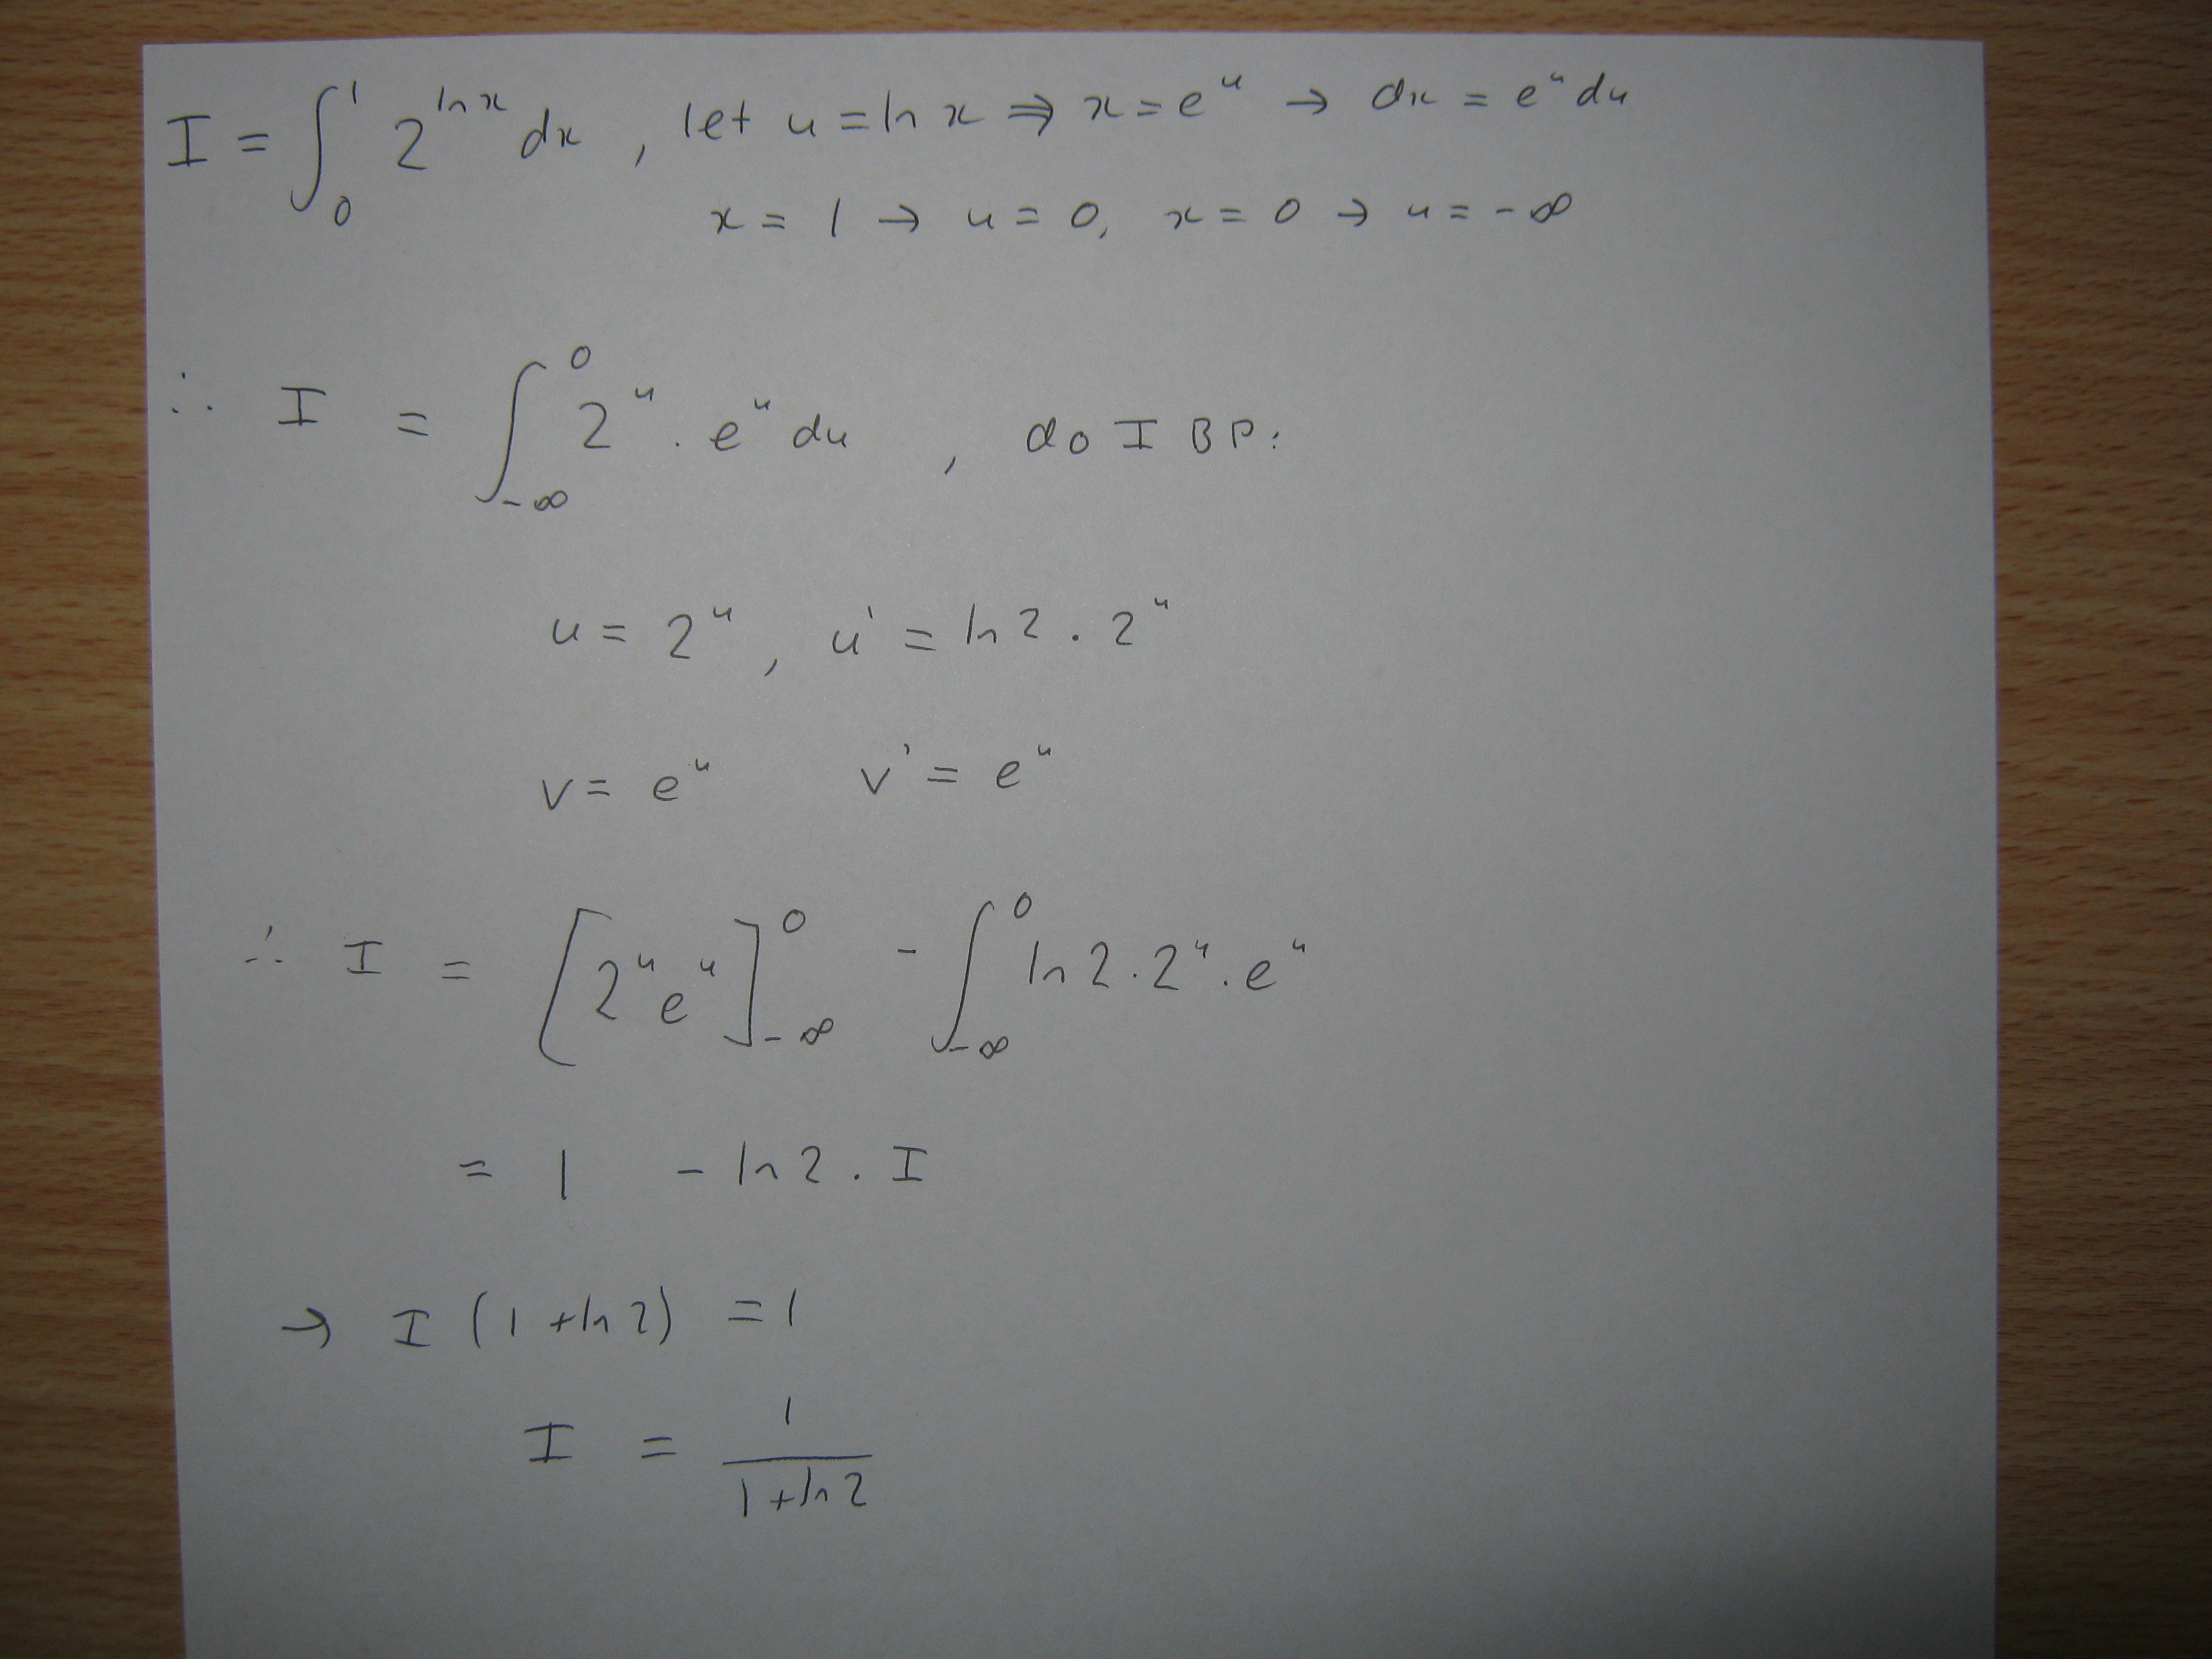 I = ∫₀¹ 2^(ln x) dx , let u = ln x ⇒ x = e^u → dx = e^u du
x = 1 → u = 0, x = 0 → u = -∞
∴ I = ∫_{-∞}^0 2^u . e^u du , do IBP:
u = 2^u , u' = ln 2 . 2^u
v = e^u v' = e^u
∴ I = [2^u e^u]_{-∞}^0 - ∫_{-∞}^0 ln 2 . 2^u . e^u
= 1 - ln 2 . I
→ I (1 + ln 2) = 1
I = 1/(1 + ln 2)